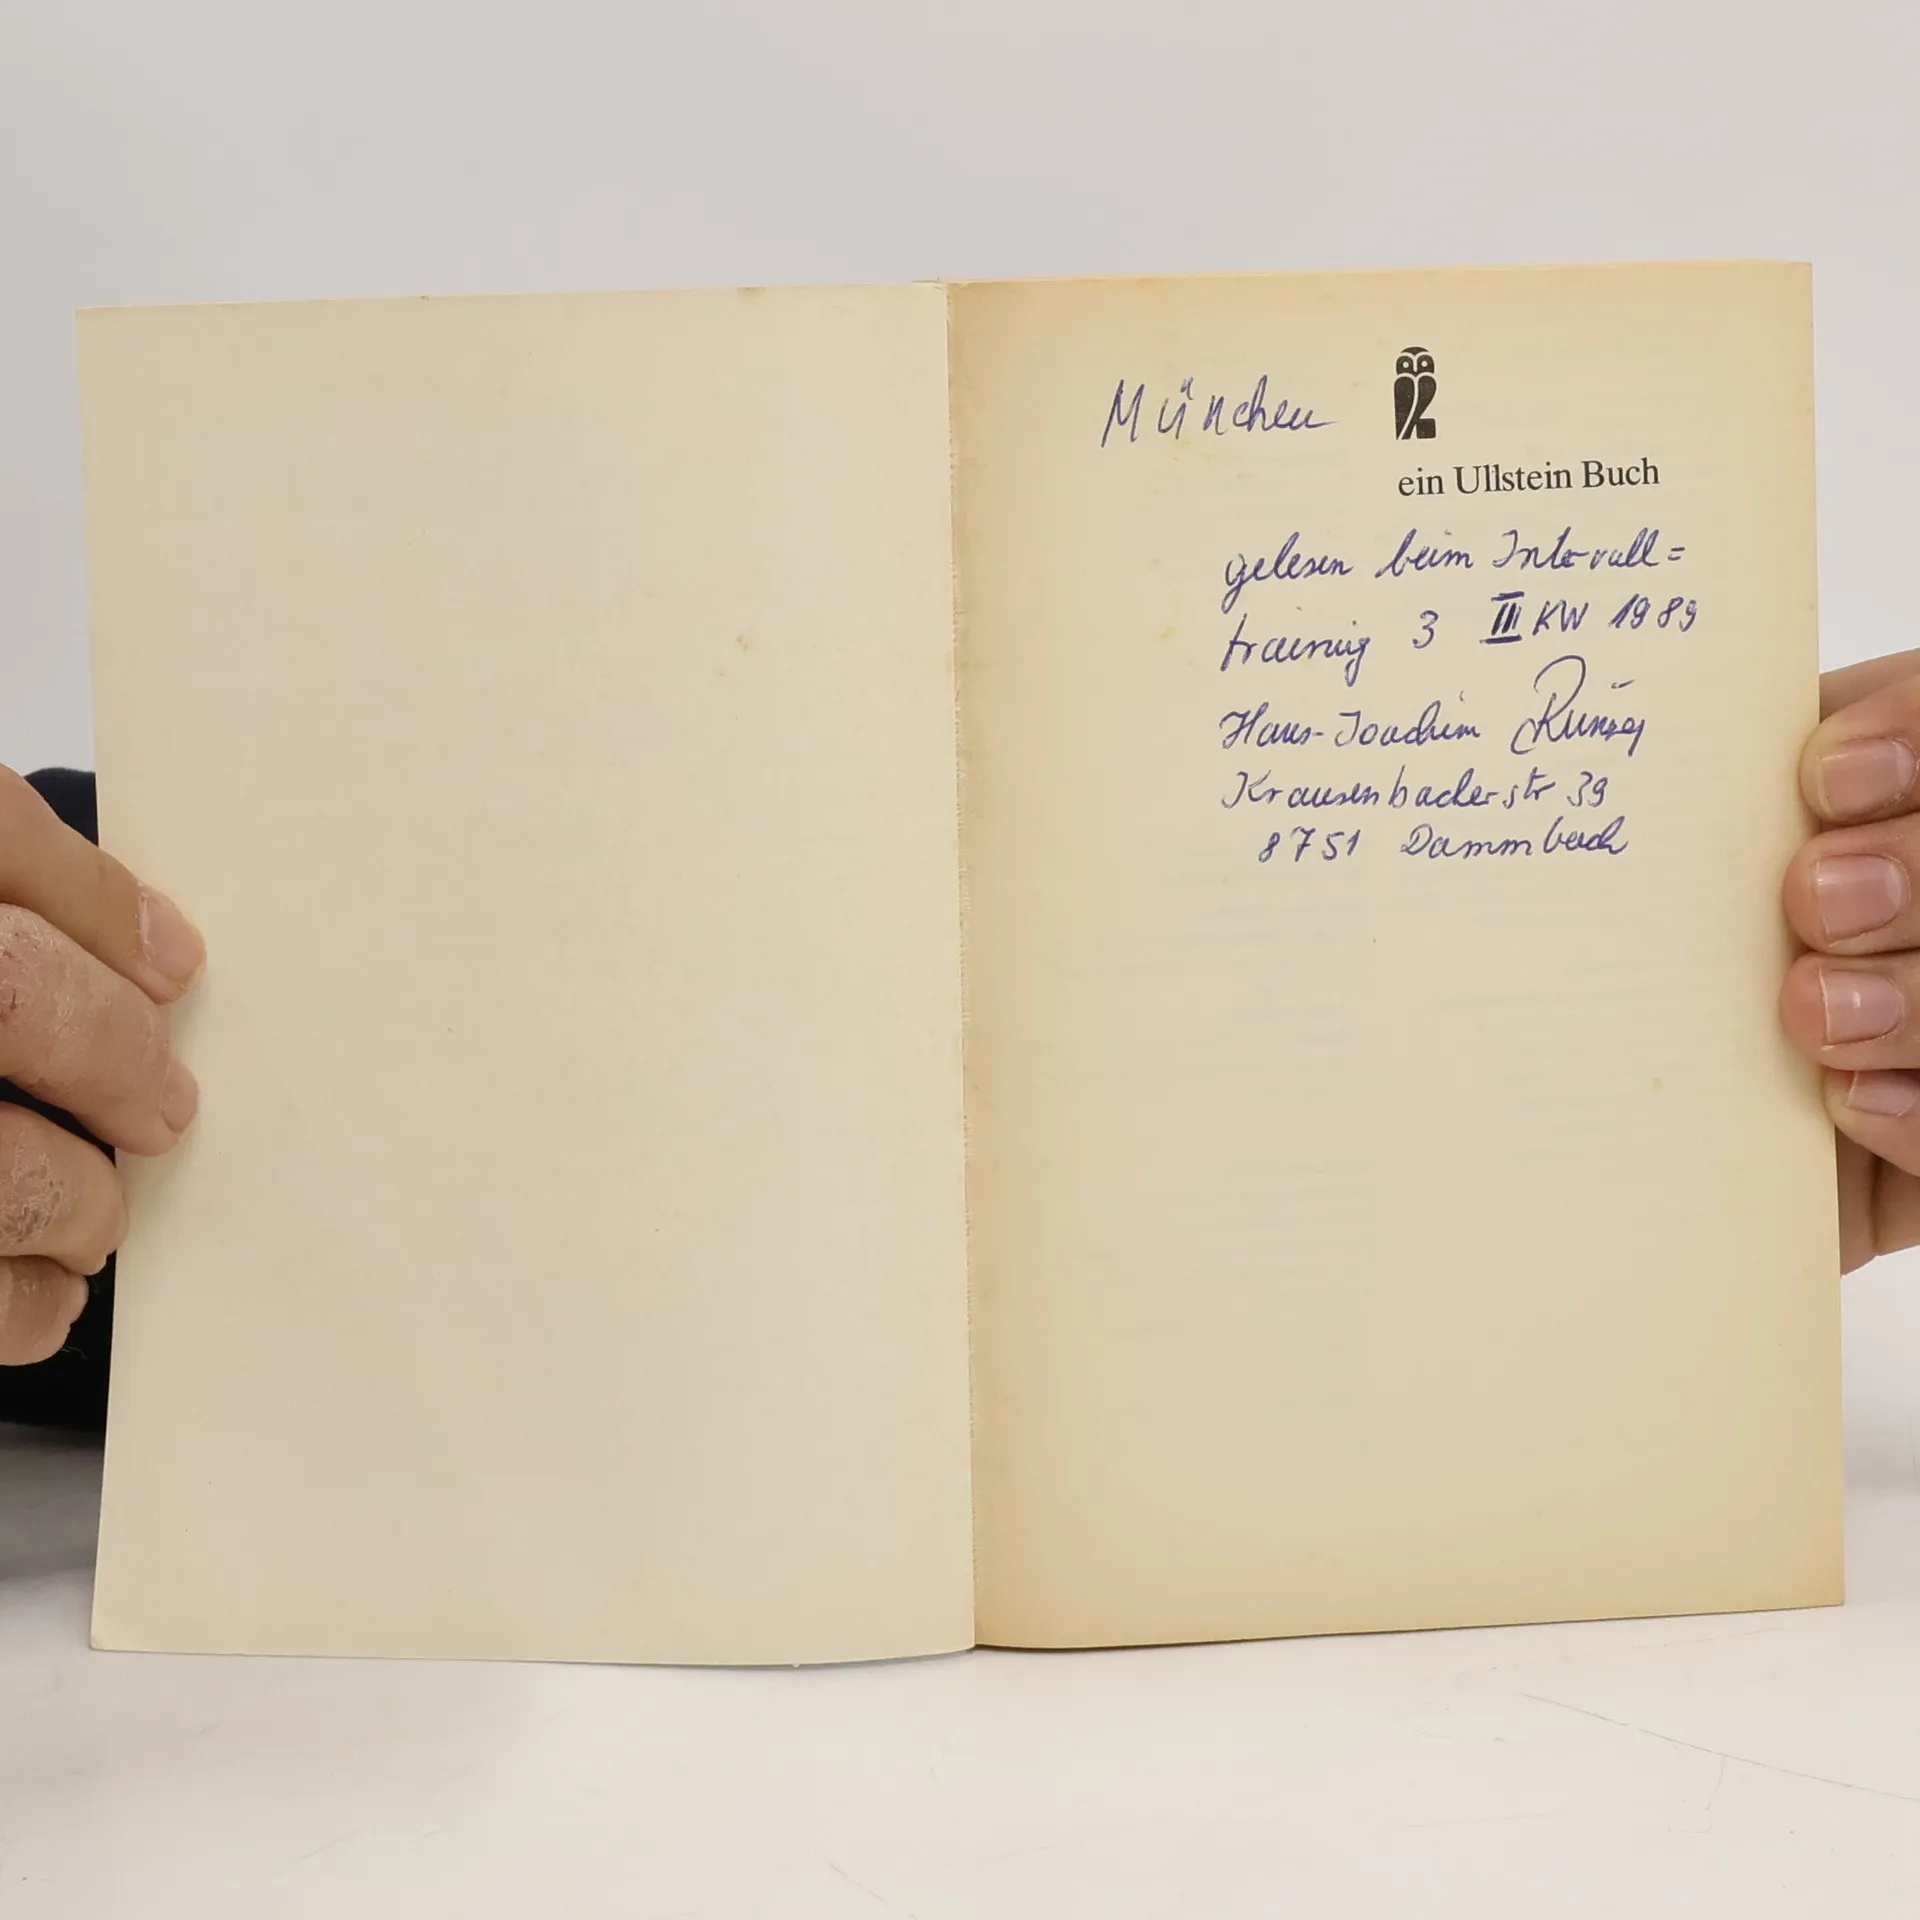 München
ein Ullstein Buch
gelesen beim Intervall=
training 3 III KW 1989
Hans-Joachim
Krausenbacherstr 39
8751 Dammbach